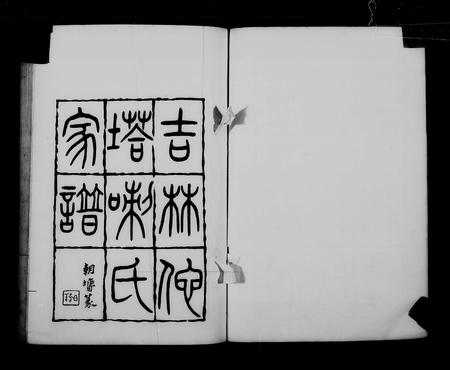 吉林他
塔喇氏
家譜
朝墉篆